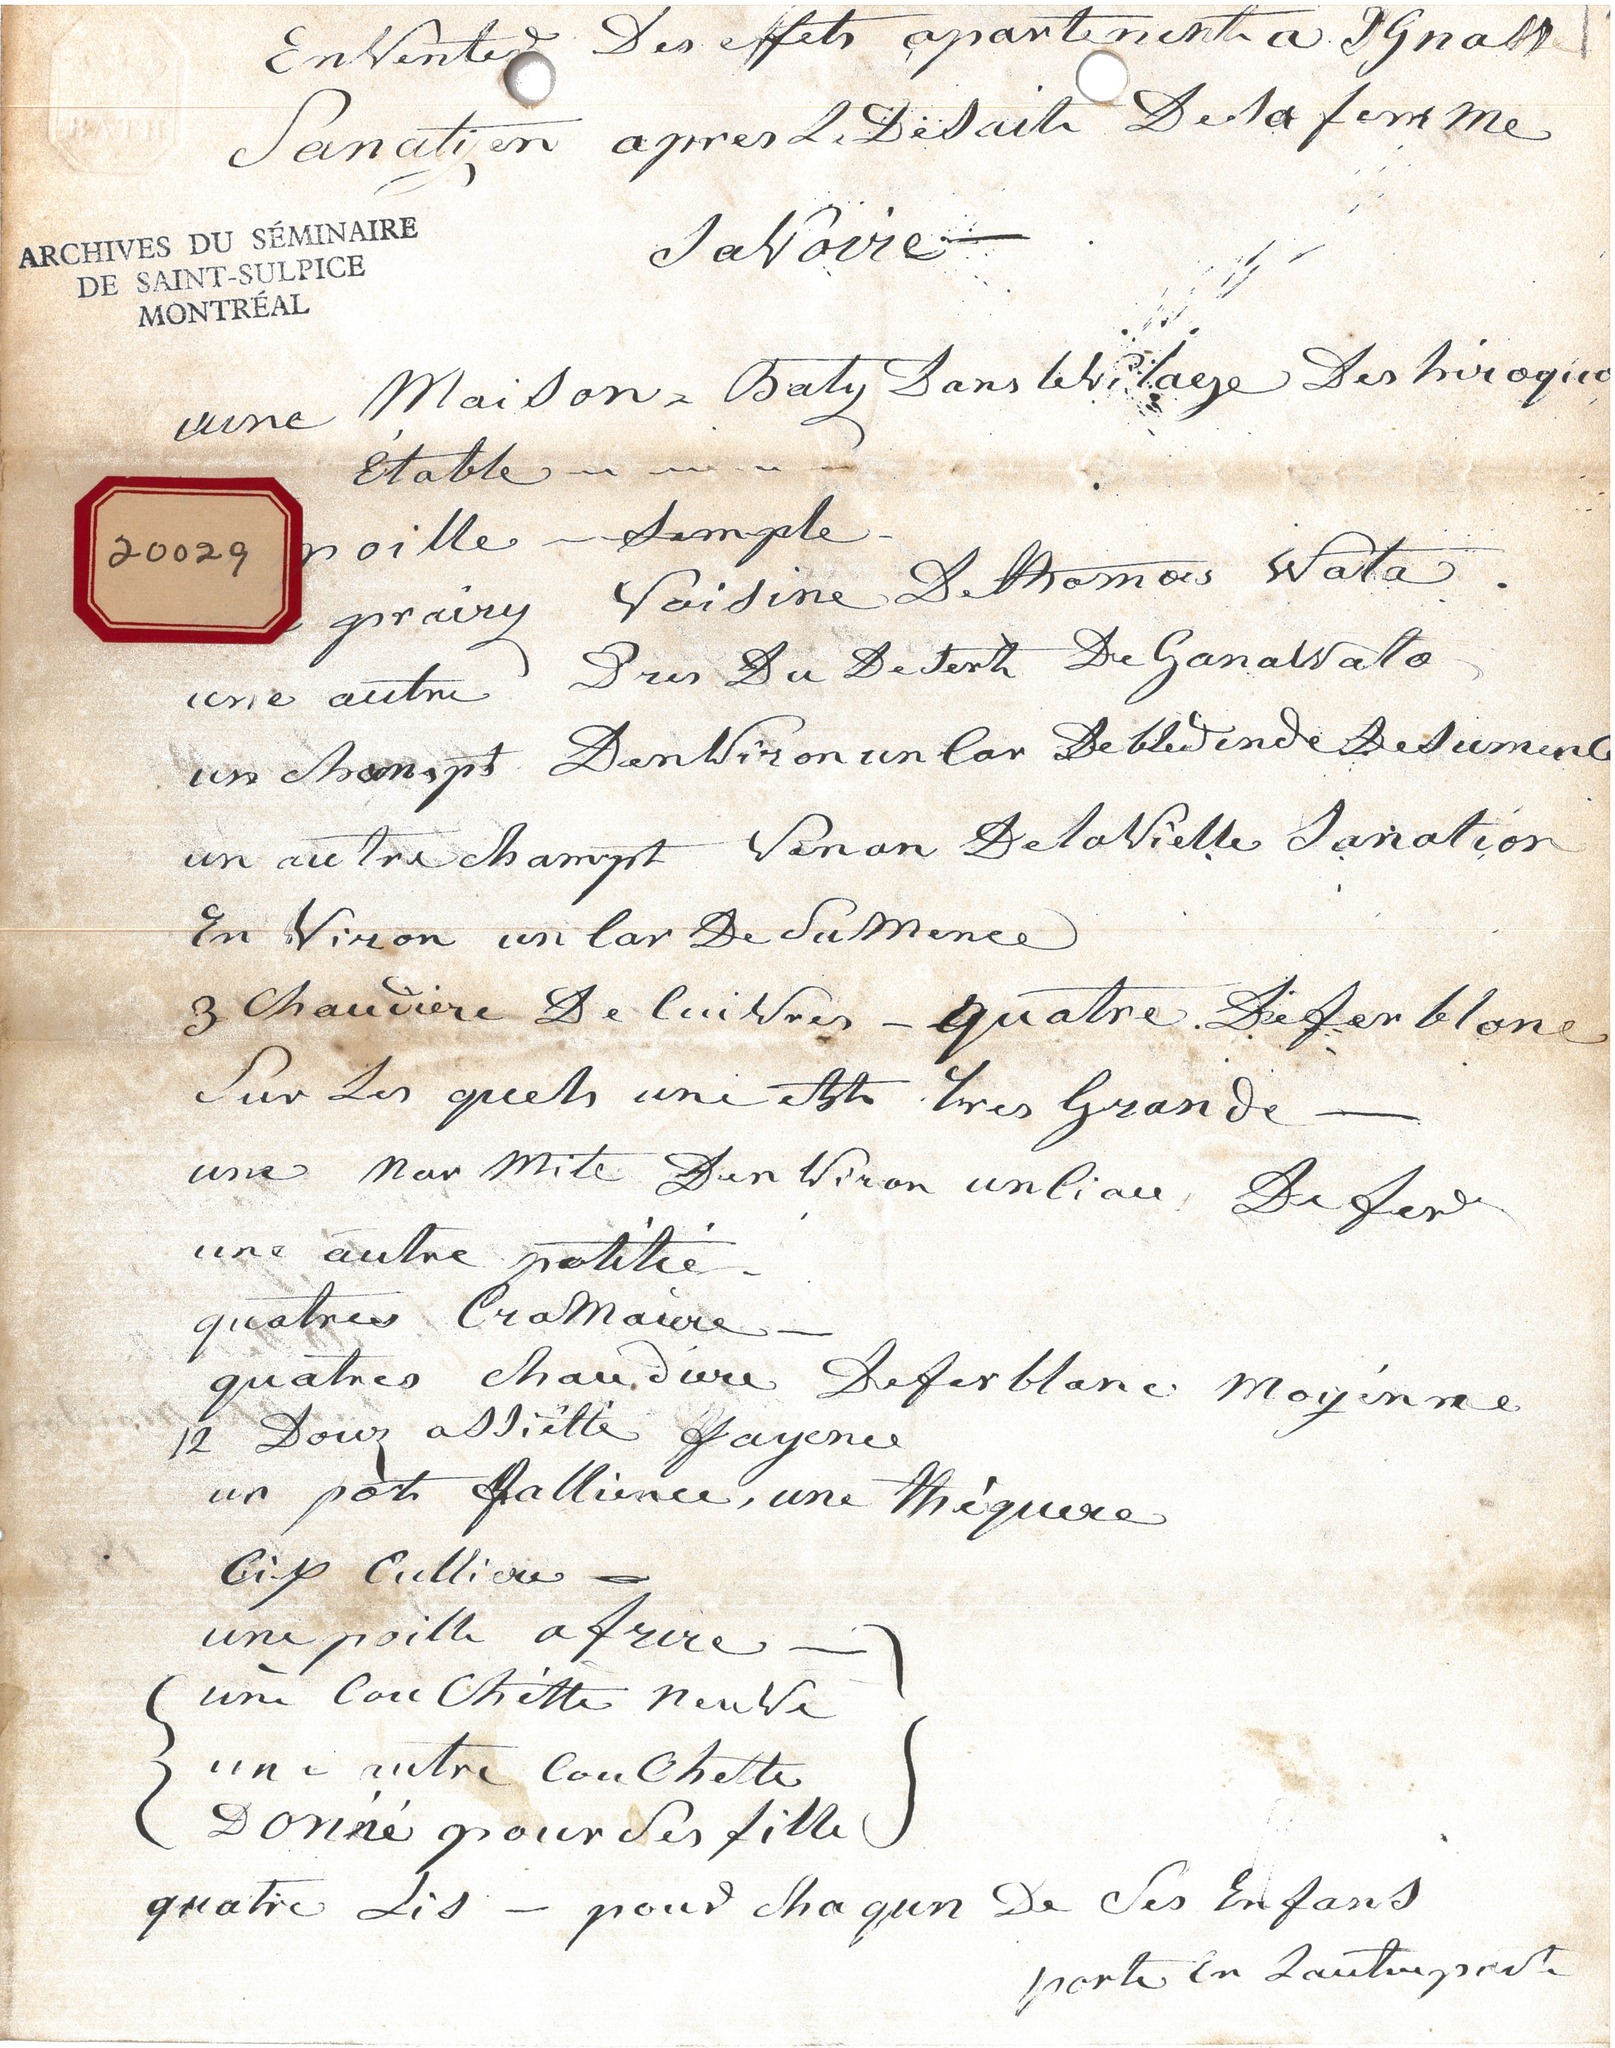 EnVente Des effets apartenent a IGnass
Sanatizen apres Le Désaits De sa femme
SaVoire —
ARCHIVES DU SÉMINAIRE
DE SAINT-SULPICE
MONTRÉAL
une Maison - Baty Dans le Vilaege Des hiroquo
Étable
20029
poille - Semple -
prairy Voisine De thomas Wata .
une autre Pres Du Desert De GanaWata
un champt DenViron un Car De bled inde De sumence
un autre champt Venan De la Vielle Sanation
En Viron un Car De SuMence
3 Chaudiere De CuiVres - quatre De fer blanc
Sur Les quels une est tres Grande —
une Mar Mite Den Viron un Ciau, De fer
une autre patitie -
quatres CraMaire -
quatres chaudiere De fer blanc Moyénne
12 Douz assiétte ffayence
un pot ffallience, une théquere
Cix Culliere -
une poille a frire -
une CouChétte neuVe
une autre CouChette
Donné pour Ses fille
quatre Lis - pour chaqun De Ses Enfans
porte En Lautre part